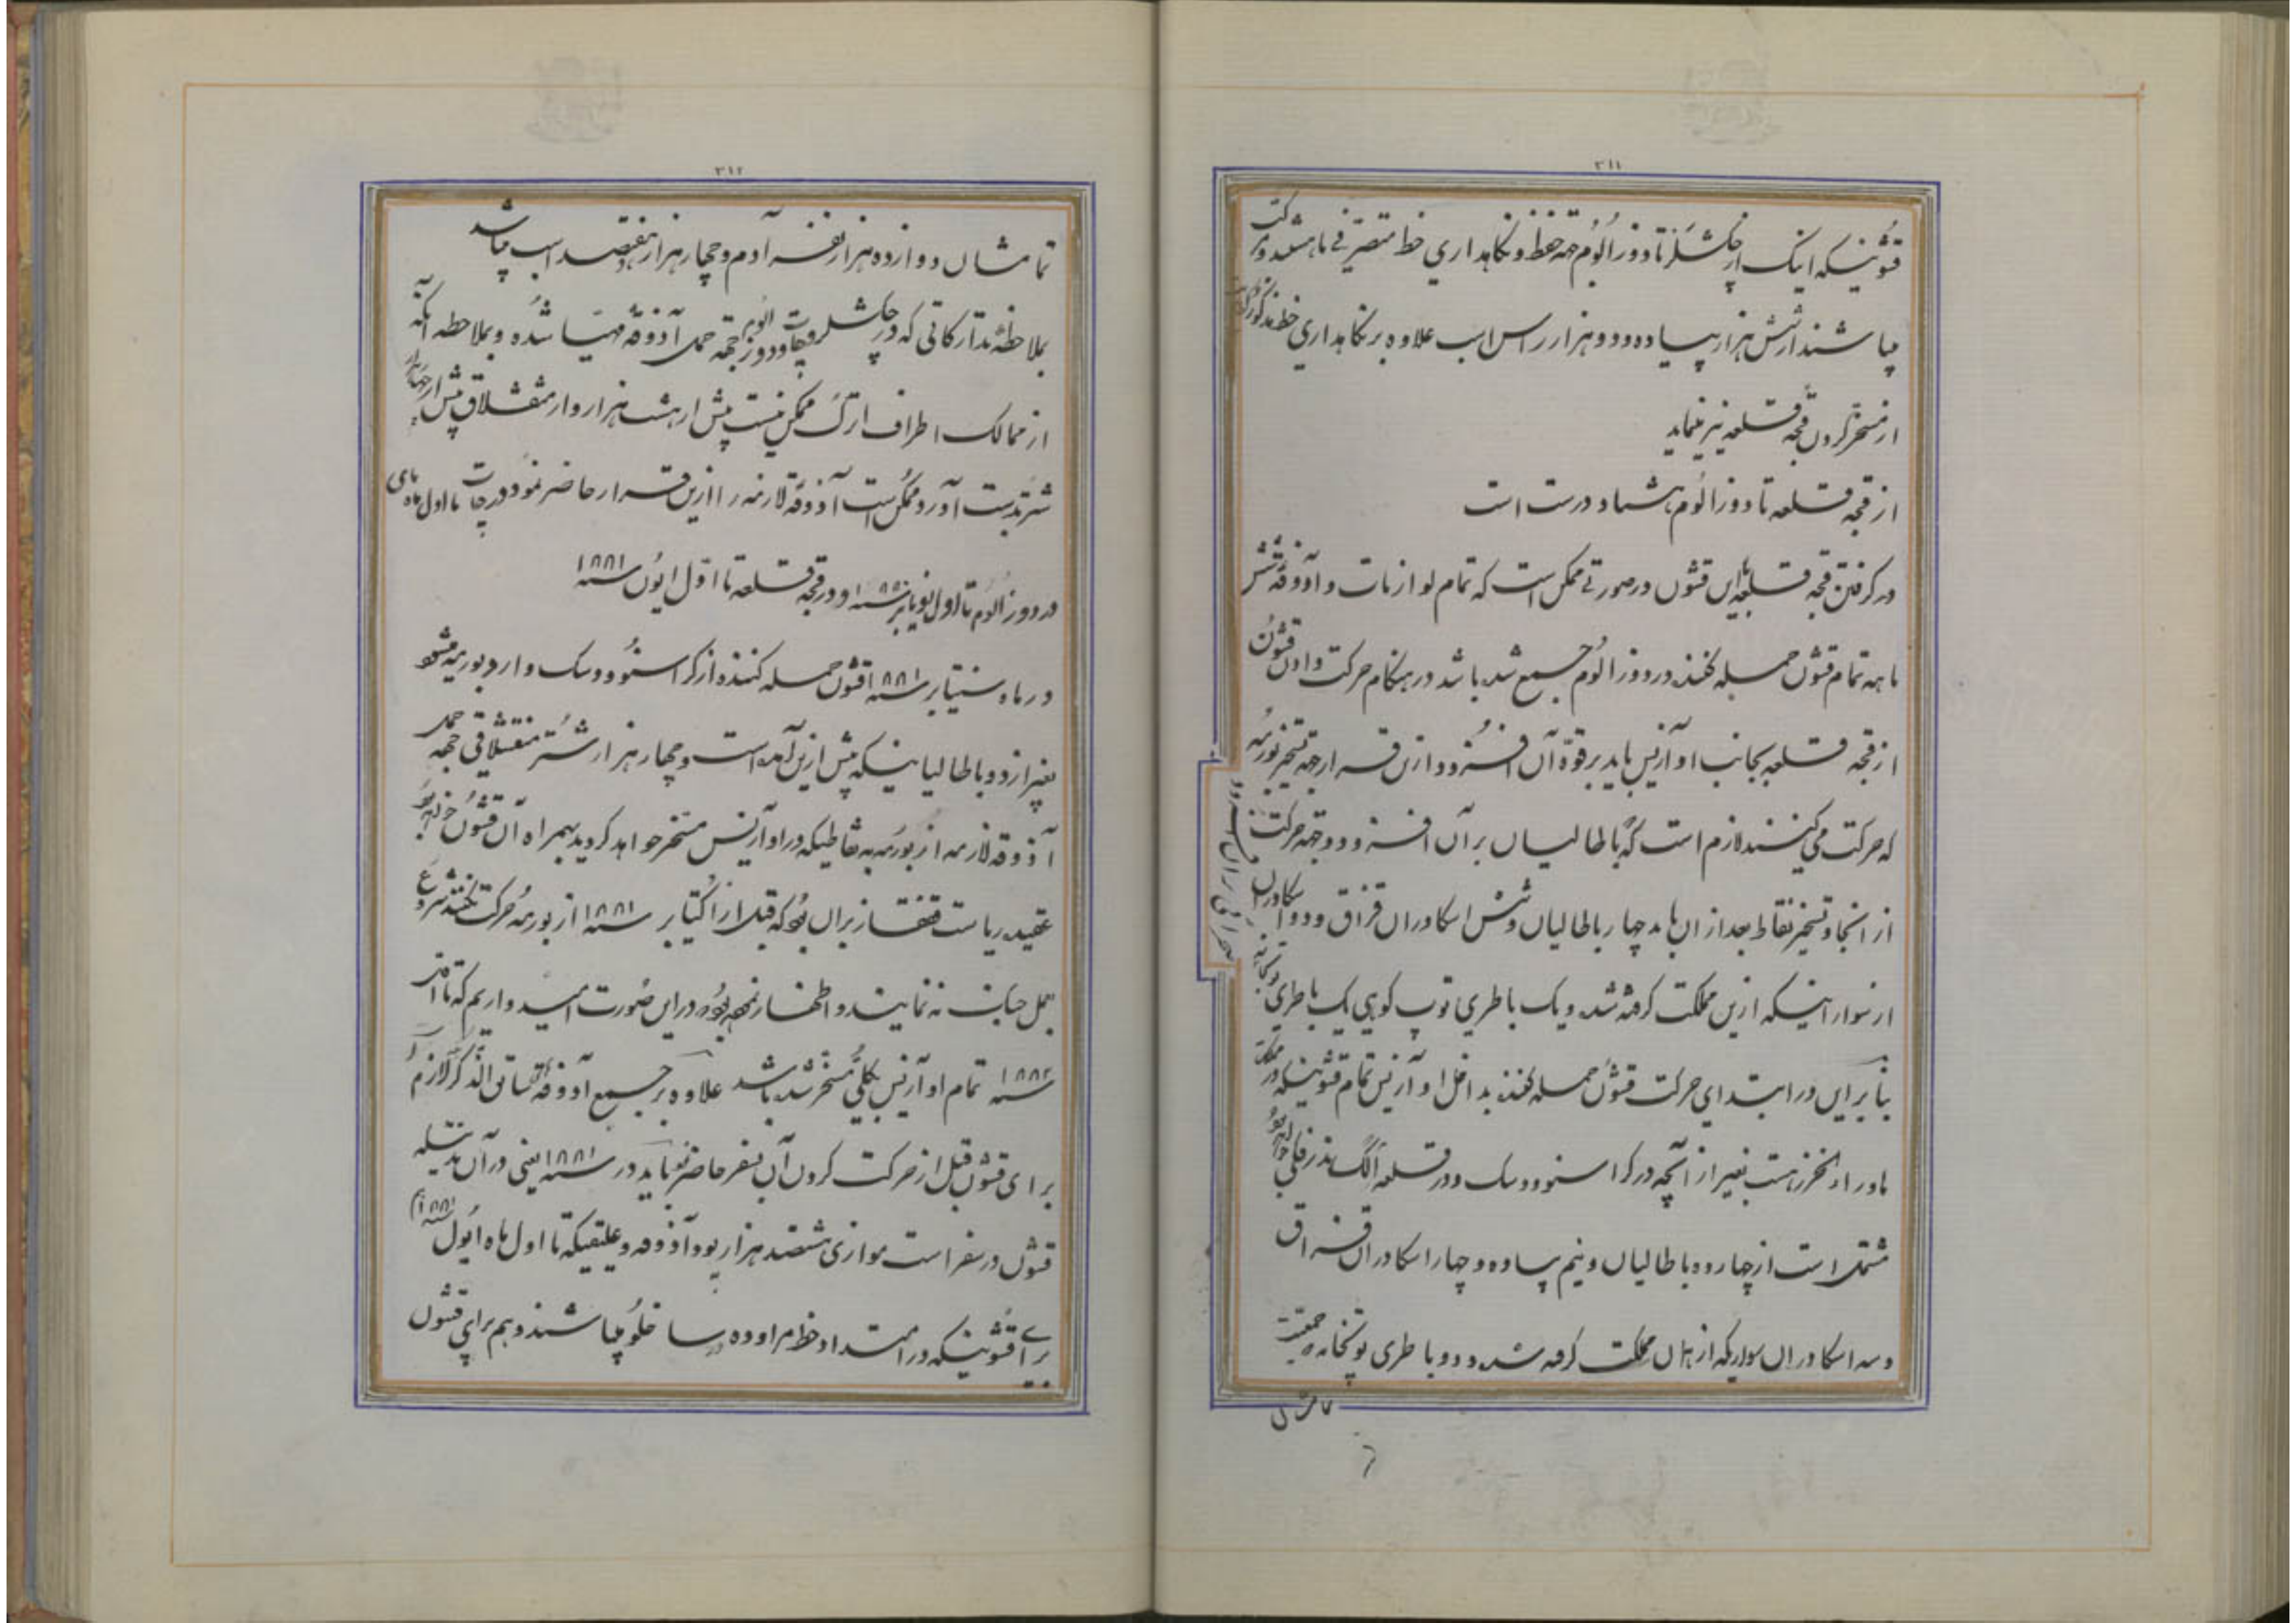 ۳۱۱
قشونیکه اینک از چکشلر تا دوزالوم جهة حفظ و نگاهداری خط متصرفی ما هستند و حرکت
میباشند از شش هزار پیاده و دو هزار راس اسب علاوه بر نگاهداری خط مذکور
از مسخر کردن قجه قلعه نیز مینماید
از قجه قلعه تا دوزالوم هشتاد درست است
در گرفتن قجه قلعه این قشون در صورتی ممکن است که تمام لوازمات و آذوقه شش
ماهه تمام قشون حمله کننده در دوزالوم جمع شده باشد در هنگام حرکت دادن قشون
از قجه قلعه بجانب اوآزیس باید بر قوة آن افزود از این قرار جهة تسخیر بورمه
که حرکت می کنند لازم است که باطالیان بر آن افزود و جهة حرکت
از آنجا و تسخیر نقاط بعد از آن باید چهار باطالیان و شش اسکادران قزاق و دو اسکادران
از سوار اینکه ازین مملکت گرفته شده و یک باطری توپ کوهی یک باطری توپخانه
بنابراین در ابتدای حرکت قشون حمله کننده بداخل اوآزیس تمام قشونیکه در مملکت
ماوراء خزر هست بغیر از آنچه در کراسنوودسک و در قلعه الکساندرفسکی خواهد بود
مشتمل است از چهارده باطالیان و نیم پیاده و چهار اسکادران قزاق
و سه اسکادران سواریکه از همان مملکت گرفته شده و دو باطری توپخانه جمعیت
تمامشان
۳۱۲
تمامشان دوازده هزار نفر آدم و چهار هزار و هفتصد اسب میباشد
بملاحظه تدارکاتی که در چکشلر و چات و دوزالوم جهة حمل آذوقه مهیا شده و بملاحظه آنکه
از ممالک اطراف اترک ممکن نیست بیش از هشت هزار و از منقشلاق بیش از چهار هزار
شتر بدست آورد ممکن است آذوقه لازمه را ازین قرار حاضر نمود در چات تا اول ماه مای
در دوزالوم تا اول نویابر سنه ۱۸۸۰ و در قجه قلعه تا اول ایون سنه ۱۸۸۱
در ماه سنتیابر سنه ۱۸۸۱ قشون حمله کننده از کراسنوودسک وارد بورمه میشود
بغیر از دو باطالیانیکه پیش ازین آمده است و چهار هزار شتر منقشلاقی جهة حمل
آذوقه لازمه از بورمه به نقاطیکه در اوآزیس مسخر خواهد گردید بهمراه آن قشون خواهد بود
عقیده ریاست قفقاز بر آن بود که قبل از اکتیابر سنه ۱۸۸۱ از بورمه حرکت نکنند شروع
بعمل جنگ نه نمایند و اظهار نموده بود در این صورت امید داریم که تا آخر
سنه ۱۸۸۲ تمام اوآزیس بکلی مسخر شده باشد علاوه بر جمیع آذوقه سابق الذکر لازم
برای قشون قبل از حرکت کردن آن بسفر حاضر نمود باید در سنه ۱۸۸۱ یعنی در آن مدتیکه
قشون در سفر است موازی ششصد هزار پود آذوقه و علیقیکه تا اول ماه ایول سنه ۱۸۸۱
برای قشونیکه در امتداد خط مراوده در ساخلو میباشند و هم برای قشون